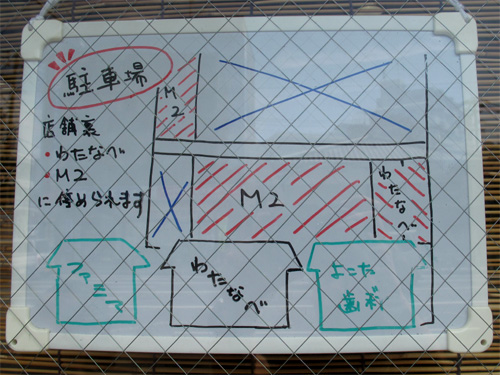 駐車場
店舗裏
・わたなべ
・M2
に停められます
M2
M2
わたなべ
ファミマ
わたなべ
よこた
歯ボ